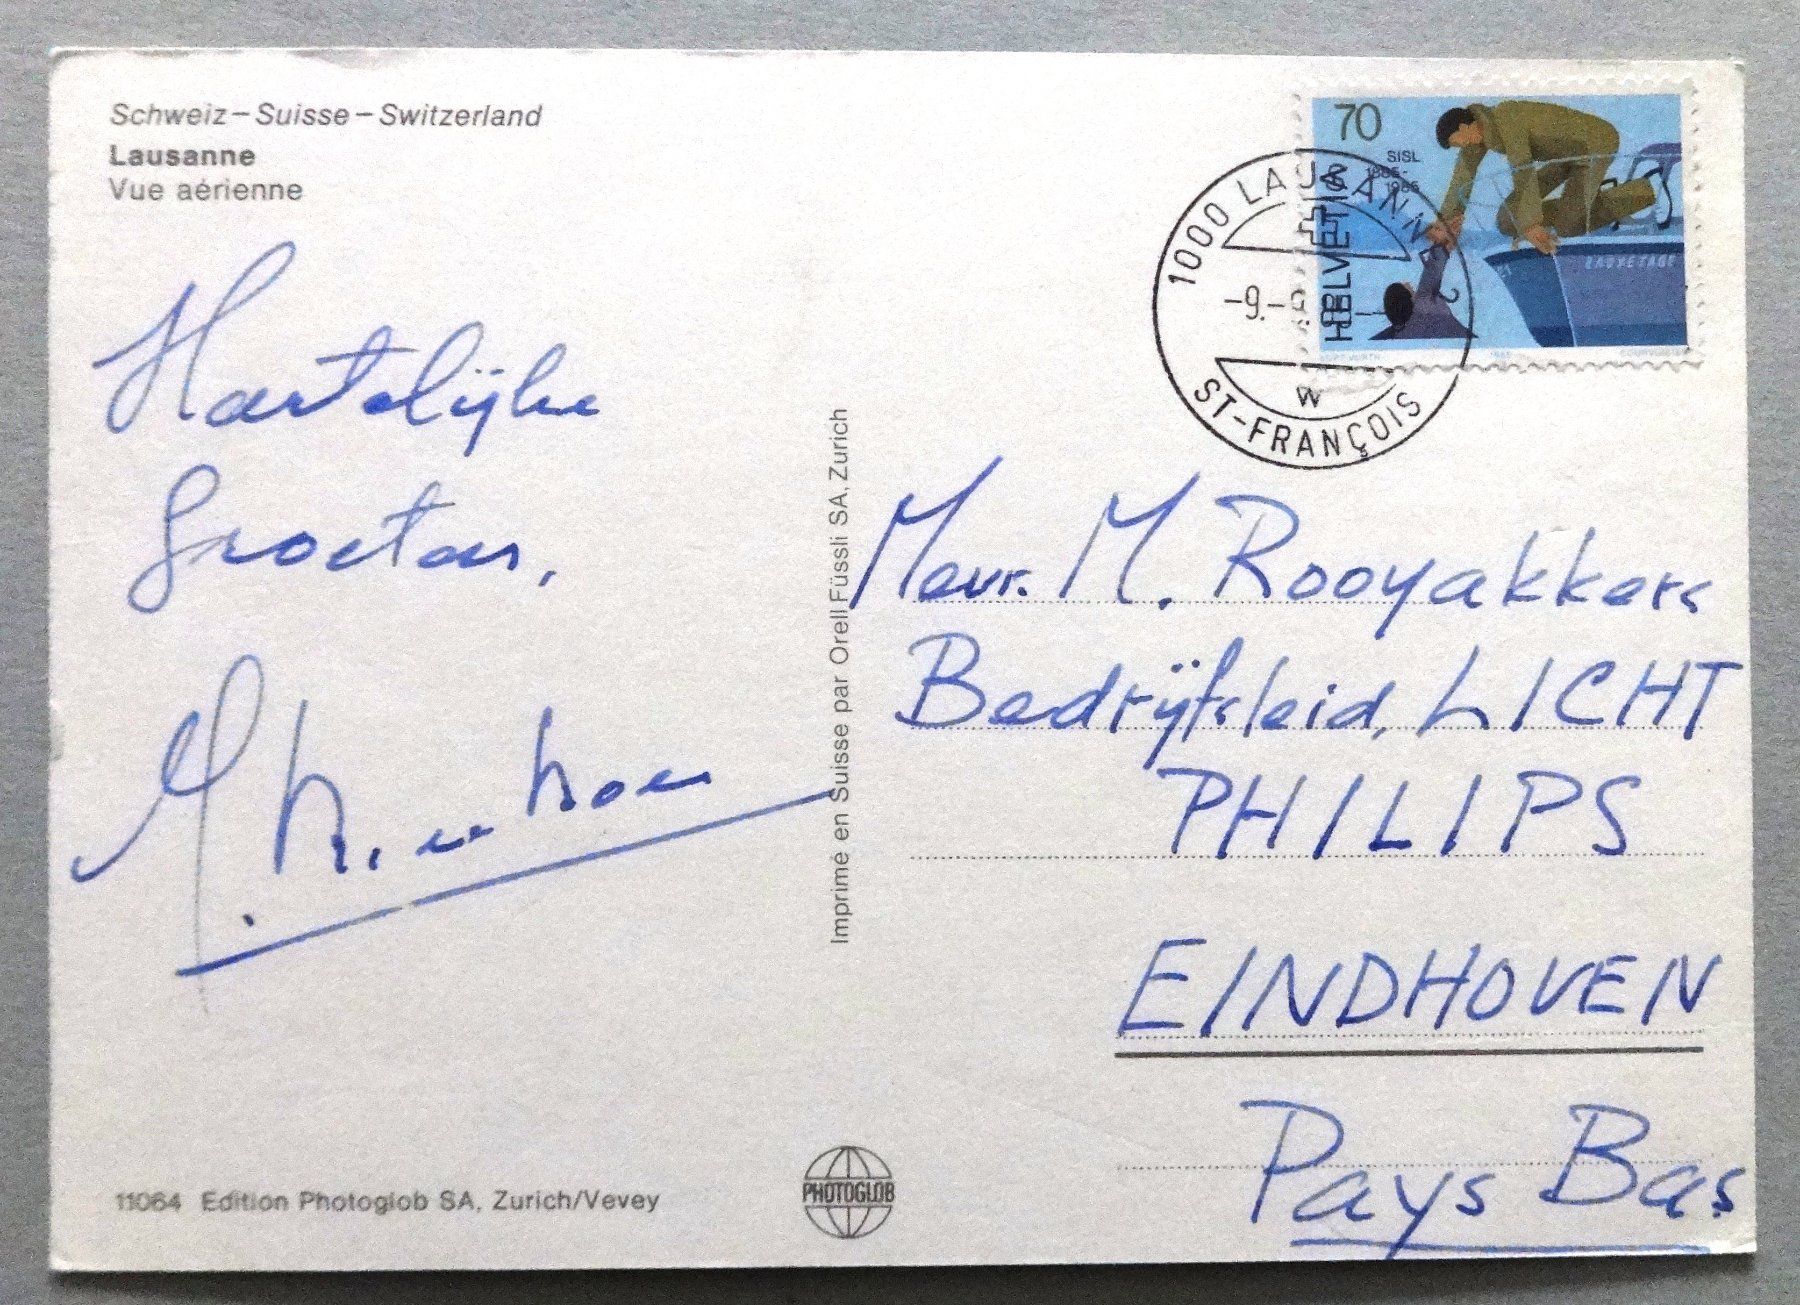 Schweiz – Suisse – Switzerland
Lausanne
Vue aérienne
Hartelijke
Groeten,
Imprimé en Suisse par Orell Füssli SA, Zurich
70
SISL
1885-
1985
HELVETIA
SAUVETAGE
COURVOISIER
1000 LAUSANNE 2
-9.-9.
W
ST-FRANÇOIS
Mevr. M. Rooyakkers
Bedrijfsleid, LICHT
PHILIPS
EINDHOVEN
Pays Bas
11064 Edition Photoglob SA, Zurich/Vevey
PHOTOGLOB